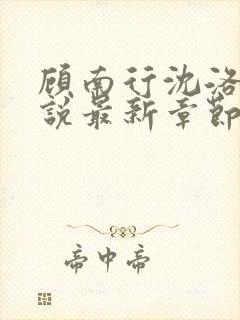 顾南行沈洛
説最新章節
帝中帝